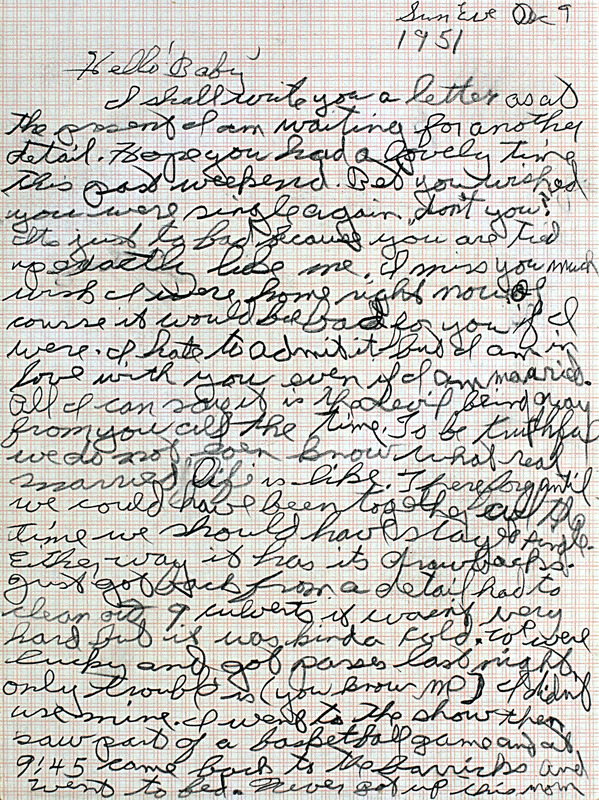 Sun Eve Dec 9
1951
Hello Baby
I shall write you a letter as at
the present I am waiting for another
detail. Hope you had a lovely time
this past weekend. Bet you wished
you were single again don't you?
Its just to bad because you are tied
up exactly like me. I miss you much
wish I were home right now of
course it would be bad for you if I
were. I hate to admit it but I am in
love with you even if I am married.
All I can say it is the devil being away
from you all the time. To be truthful
we do not even know what real
married life is like. Therefore until
we could have been together all the
time we should have stayed single.
Either way it has its drawbacks.
Just got back from a detail had to
clean out 9 culverts it wasnt very
hard but it was kinda cold. We were
lucky and got passes last night
only trouble is (you know me) I didnt
use mine. I went to the show then
saw part of a basketball game and at
9:45 came back to the barricks and
went to bed. Never got up this morn